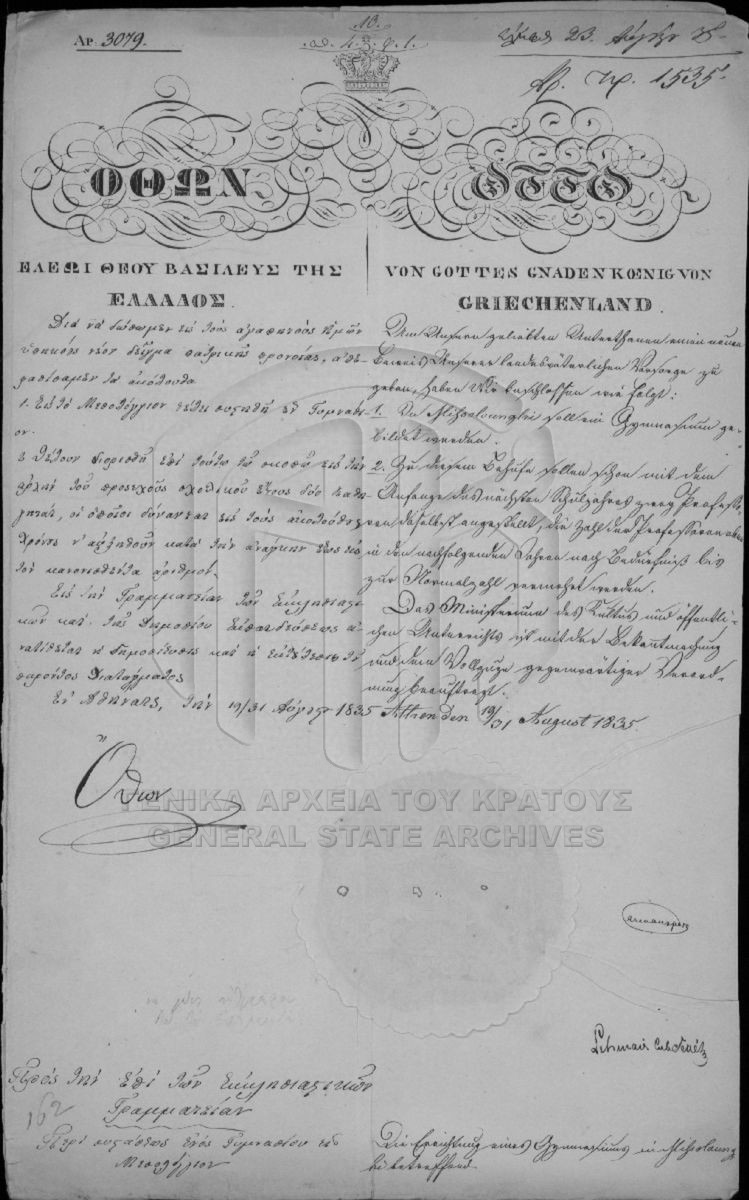 Αρ. 3079.
10.
Α. π. 1535.
ΟΘΩΝ
ΕΛΕΩι ΘΕΟΥ ΒΑΣΙΛΕΥΣ ΤΗΣ
ΕΛΛΑΔΟΣ.
Διὰ νὰ δώσωμεν εἰς τοὺς ἀγαπητοὺς Ἡμῶν
ὑπηκόους νέον δεῖγμα πατρικῆς προνοίας, ἀπε-
φασίσαμεν τὰ ἀκόλουθα
1. Εἰς τὸ Μεσολόγγιον θέλει συστηθῆ ἓν Γυμνάσι-
ον.
2 θέλουν διορισθῆ ἐπὶ τούτῳ τῷ σκοπῷ εἰς τὴν
ἀρχὴν τοῦ προσεχοῦς σχολικοῦ ἔτους δύο καθη-
γηταί, οἱ ὁποῖοι δύνανται εἰς τοὺς ἀκολούθους
χρόνους ν' αὐξηθοῦν κατὰ τὴν ἀνάγκην ἕως εἰς
τὸν κανονισθέντα ἀριθμόν.
Εἰς τὴν Γραμματείαν τῶν Ἐκκλησιαστι-
κῶν καὶ τῆς Δημοσίου Ἐκπαιδεύσεως ἀ-
νατίθεται ἡ δημοσίευσις καὶ ἡ ἐκτέλεσις τοῦ
παρόντος Διατάγματος
Ἐν Ἀθήναις, τὴν 19/31 Αὐγούστου 1835
Ὄθων
OTTO
VON GOTTES GNADEN KŒNIG VON
GRIECHENLAND.
Um Unsern geliebten Unterthanen einen neuen
Beweis Unserer landesväterlichen Vorsorge zu
geben, haben Wir beschlossen wie folgt:
1. In Missolounghi soll ein Gymnasium ge-
bildet werden.
2. Zu diesem Behufe sollen schon mit dem
Anfange des nächsten Schuljahres zwey Professo-
ren daselbst angestellt, die Zahl der Professoren aber
in den nachfolgenden Jahren nach Bedürfniß bis
zur Normalzahl vermehrt werden.
Das Ministerium des Kultus und öffentli-
chen Unterrichts ist mit der Bekanntmachung
und dem Vollzuge gegenwärtiger Verord-
nung beauftragt.
Athen den 19/31 August 1835.
ΓΕΝΙΚΑ ΑΡΧΕΙΑ ΤΟΥ ΚΡΑΤΟΥΣ
GENERAL STATE ARCHIVES
Πρὸς τὴν ἐπὶ τῶν Ἐκκλησιαστικῶν
Γραμματείαν
162
Περὶ συστάσεως ἑνὸς Γυμνασίου εἰς
Μεσολόγγιον
Die Errichtung eines Gymnasiums in Missolounghi
betreffend.